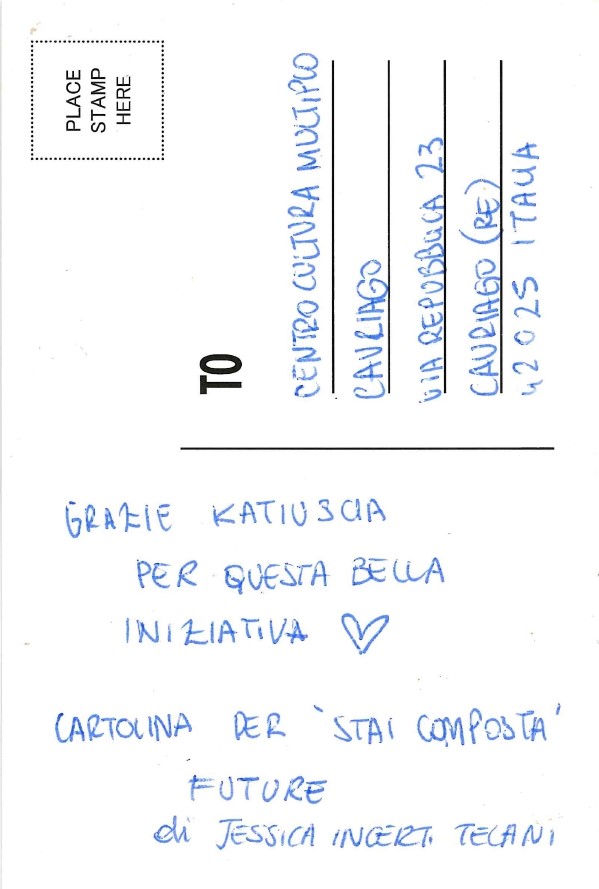 PLACE
STAMP
HERE
TO
CENTRO CULTURA MULTIPLO
CAVRIAGO
VIA REPUBBLICA 23
CAVRIAGO (RE)
42025 ITALIA
GRAZIE KATIUSCIA
PER QUESTA BELLA
INIZIATIVA ♡
CARTOLINA PER "STAI COMPOSTA"
FUTURE
di JESSICA INCERTI TELANI